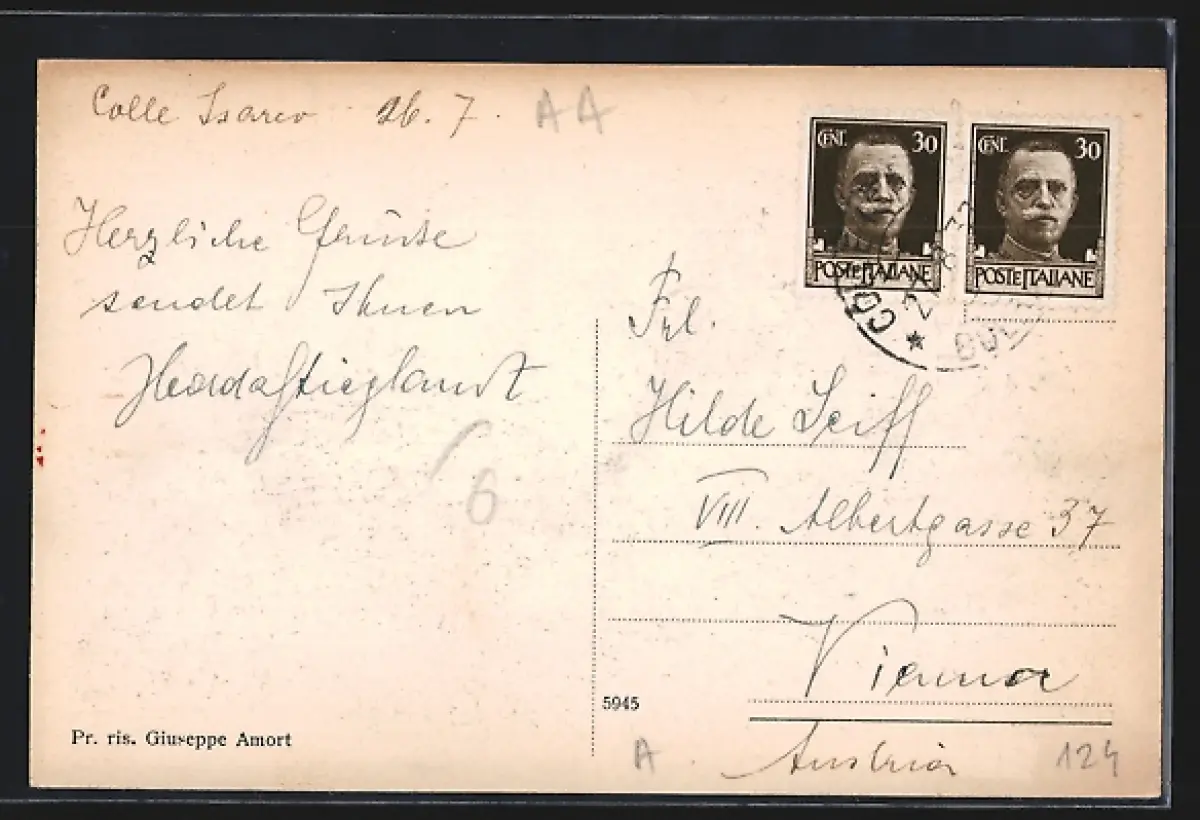 Colle Isarco 26. 7.
A4
Herzliche Grüsse
sendet Ihnen
6
Pr. ris. Giuseppe Amort
CENT. 30
POSTE ITALIANE
CENT. 30
POSTE ITALIANE
Frl.
Hilde Seiff
VIII. Albertgasse 37
Vienna
Austria
5945
A
124